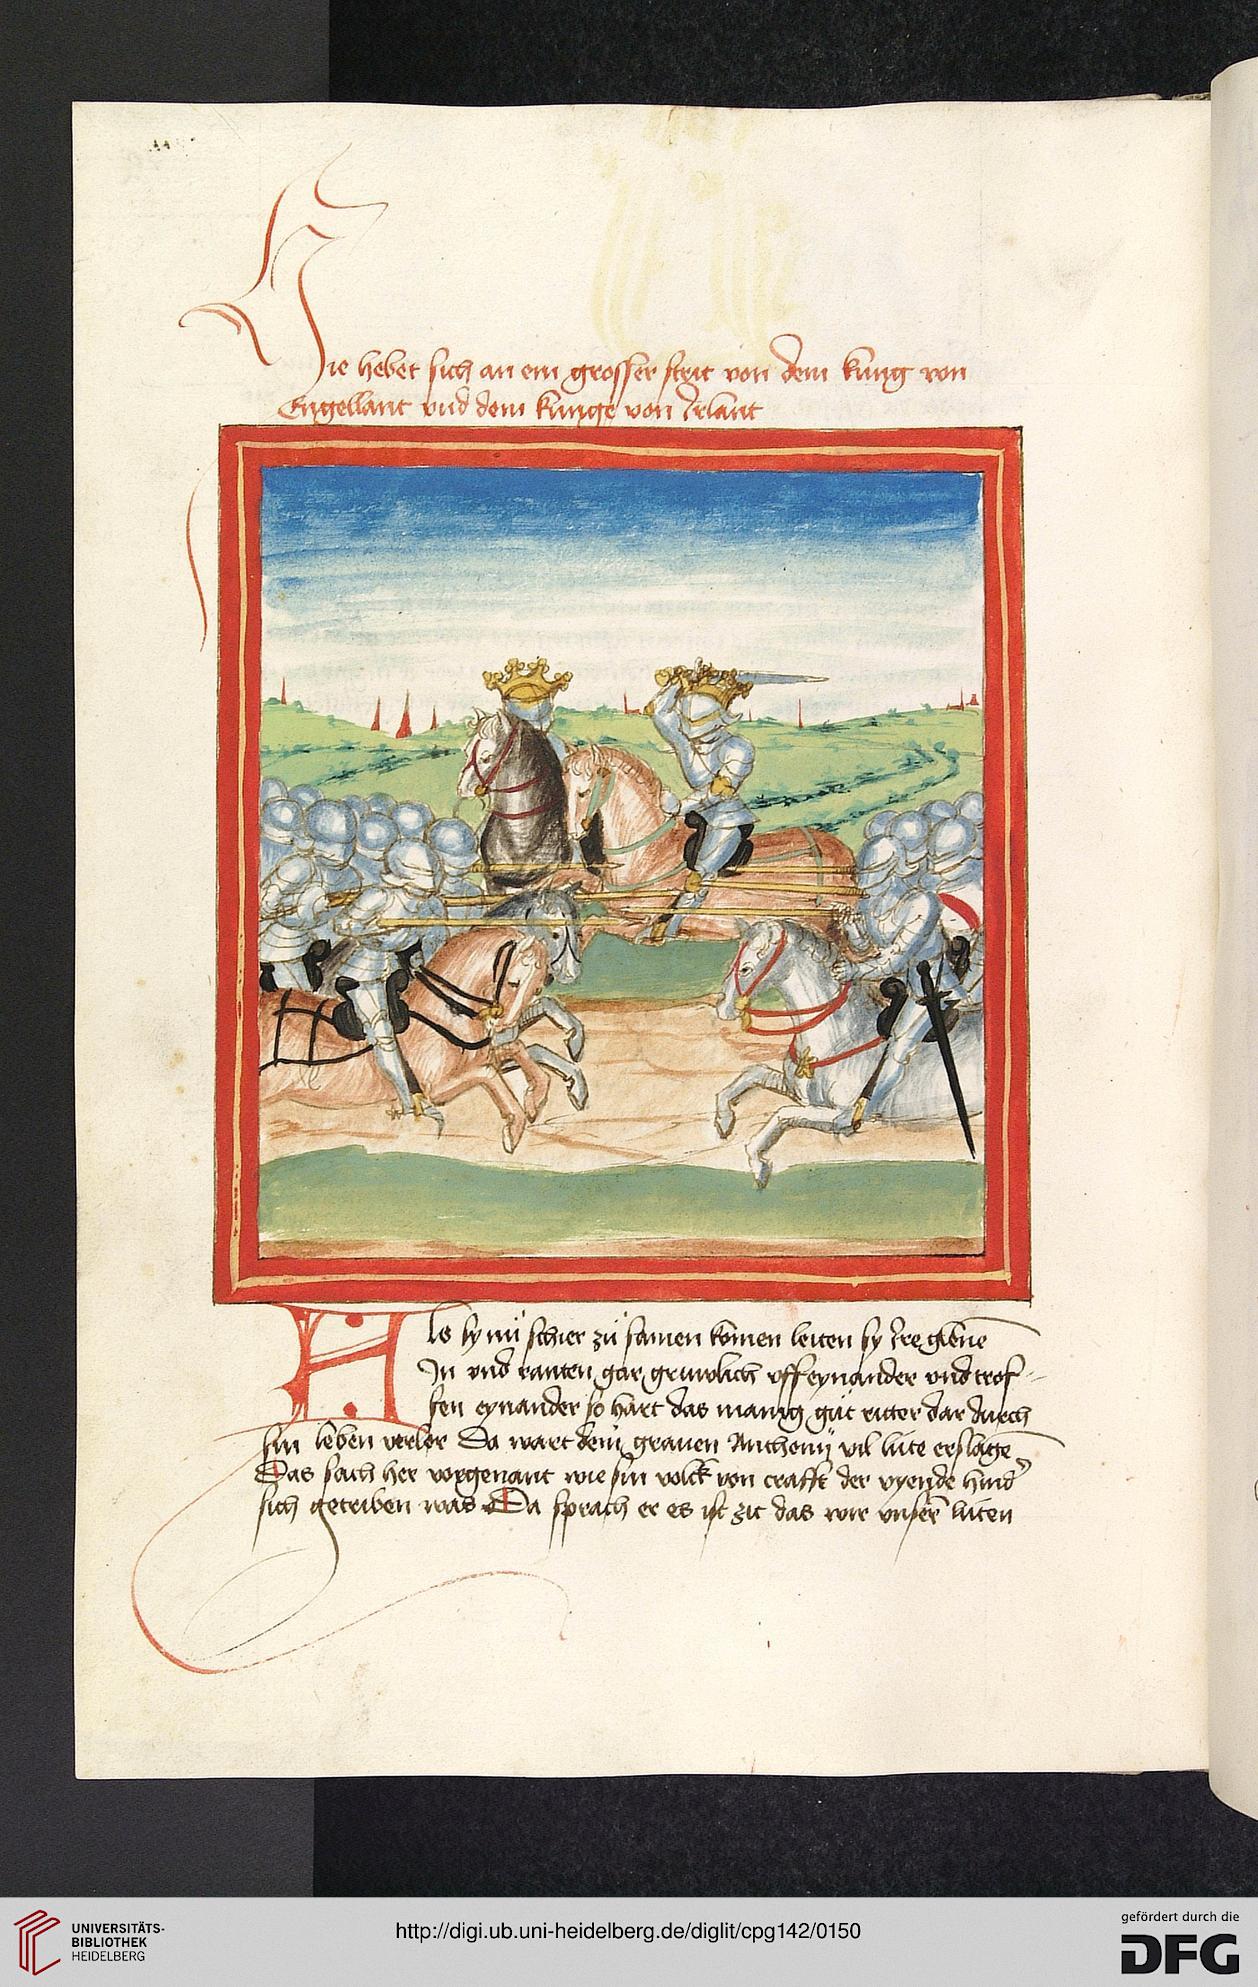 Hie hebet sich an ein grosser strit von dem kung von
Engellant vnd dem kunge von Irlant
Als sy nu schier zu samen komen leiten sy Ire glene
In vnd ranten gar gruwlich vff eynander vnd trof-
fen eynander so hart das manig gut ritter dar durch
sin leben verlor Da wart dem grauen Anthonij vil lute erslage
Das sach her vorgenant wie sin volck von crafft der vyende hind
sich getriben was Da sprach er es ist zit das wir vnsern luten
UNIVERSITÄTS-
BIBLIOTHEK
HEIDELBERG
http://digi.ub.uni-heidelberg.de/diglit/cpg142/0150
gefördert durch die
DFG